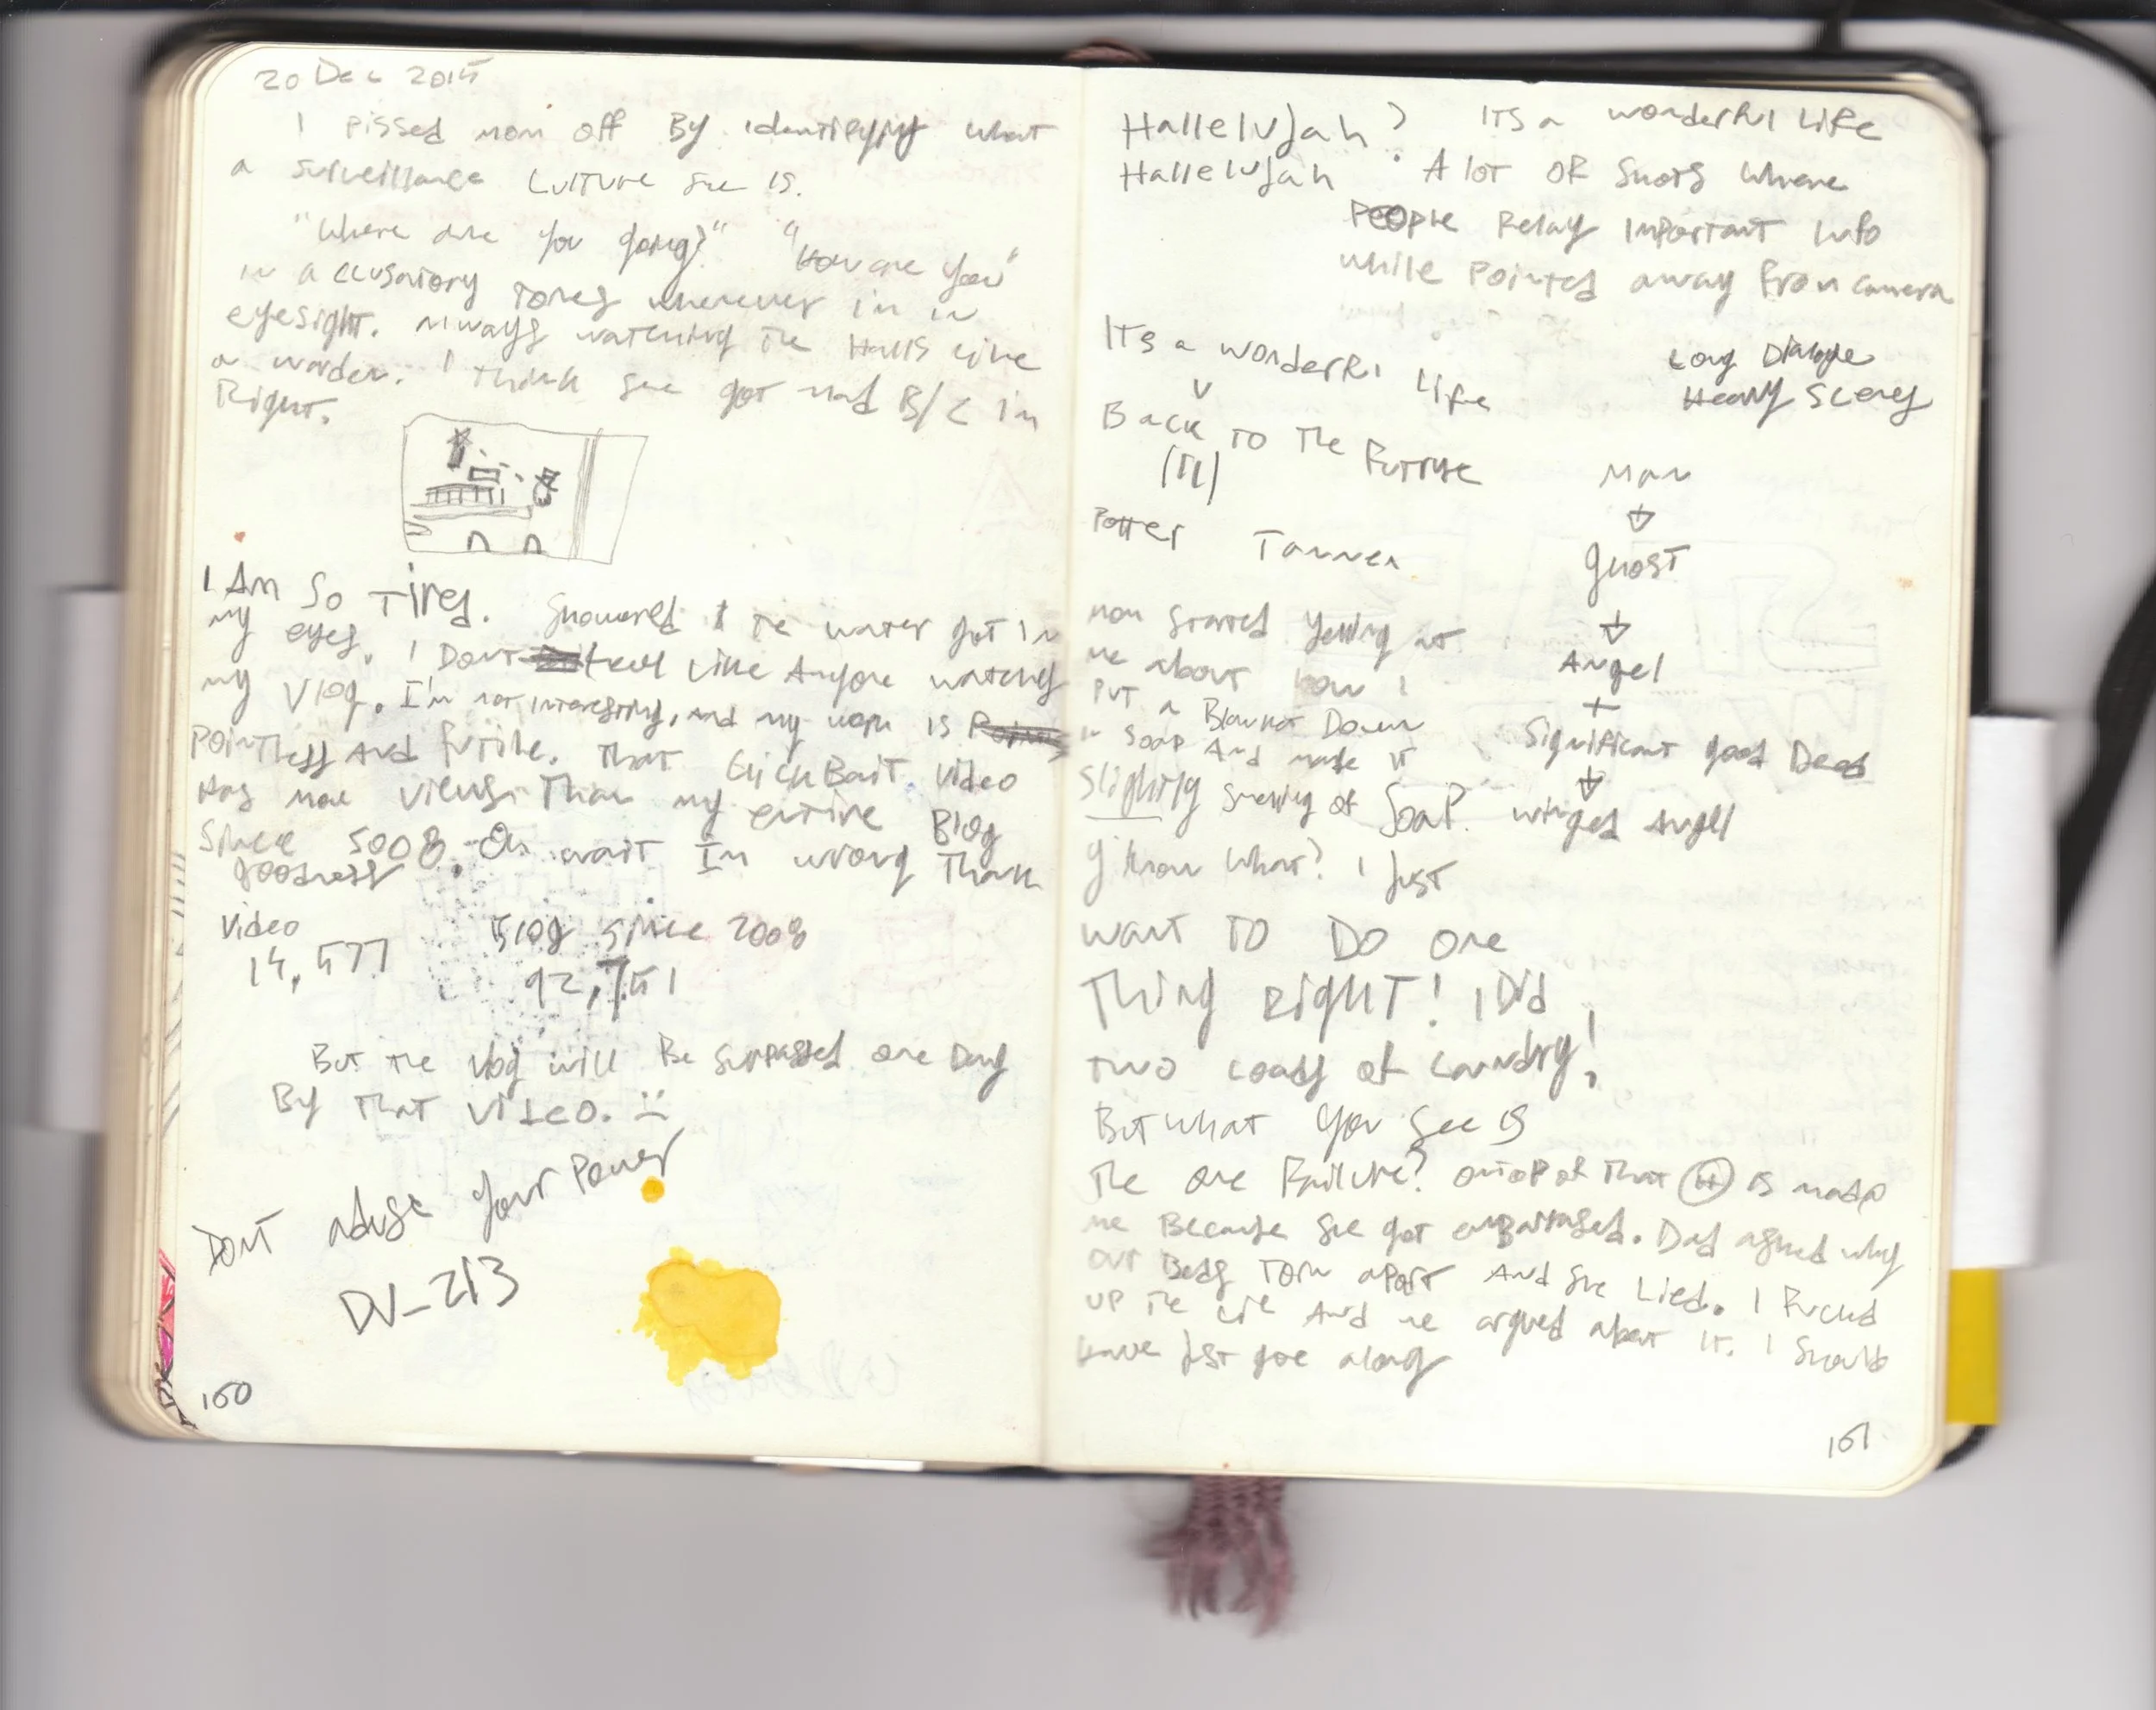 20 Dec 2015
I pissed mom off By identifying what
a surveillance culture she is.
"Where are you going?" "How are you"
in accusatory tones whenever im in
eyesight. Always watching the Halls like
a warden. I think she got mad B/C im
Right.
I Am So Tired. Showered & the water got in
my eyes. I Dont feel like Anyone watches
my Vlog. I'm not interesting, and my work is
Pointless And futile. That ClickBait video
Has more views than my entire Blog
Since 5008. Oh wait Im wrong Thank
goodness
Video
14,577
Blog since 2008
92,751
But the Vlog will Be surpassed one Day
By that video. :(
Dont abuse your Power
DV-213
160
Hallelujah?
Hallelujah
ITs a wonderful Life
A lot of Shots Where
People Relay Important Info
while Pointed away from camera
ITs a wonderful Life
v
Back to the Future
(II)
Long Dialogue
Heavy Scenes
Potter Tannen
Man
Ghost
Angel
+
Significant good Deed
winged Angel
mom started yelling at
me about how I
put a Blanket Down
in Soap And made it
slightly smelling of Soap.
y'know what? I Just
want TO DO one
Thing RIGHT! I Did
two loads of laundry!
But what you see is
the one Failure? ontop of that is mad @
me Because she got embarrassed. Dad asked why
our Beds torn apart And she Lied. I Fucked
up the lie And we argued about it. I should
Have jst gone along
161